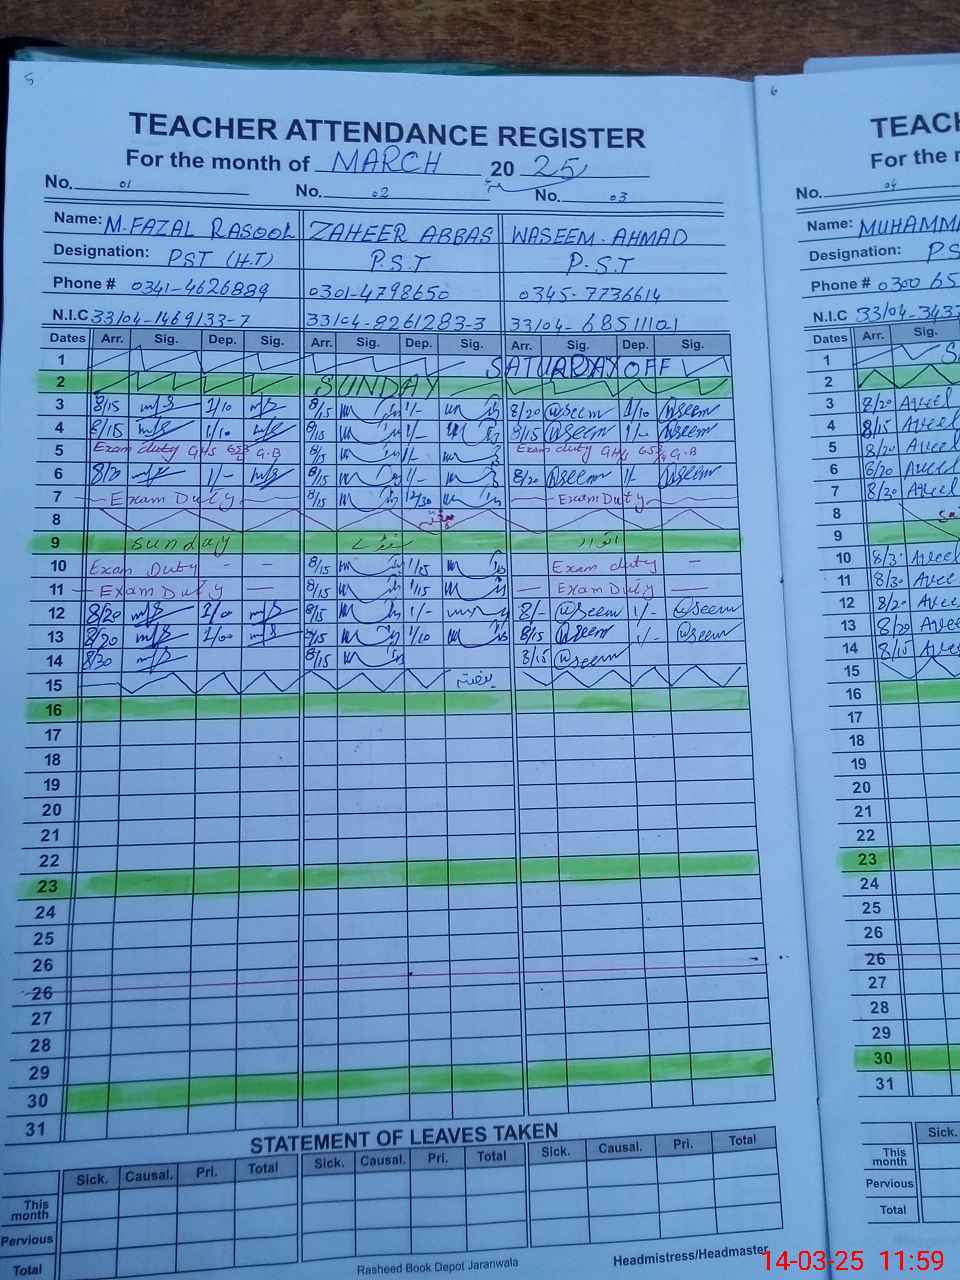 5
TEACHER ATTENDANCE REGISTER
For the month of MARCH 2025
No. 01 No. 02 No. 03
Name: M. FAZAL RASOOL ZAHEER ABBAS WASEEM. AHMAD
Designation: PST (H.T) P.S.T P.S.T
Phone # 0341-4626889 0301-4798650 0345-7736614
N.I.C 33104-1469133-7 33104-8261283-3 33104-6851110-1
Dates Arr. Sig. Dep. Sig. Arr. Sig. Dep. Sig. Arr. Sig. Dep. Sig.
1 SATURDAY OFF
2 SUNDAY
3 8/15 1/10 8/15 1/- 8/20 Waseem 1/10 Waseem
4 8/15 1/10 8/15 1/- 8/15 Waseem 1/- Waseem
5 Exam duty GHS G.B 8/15 1/- Exam duty GHS G.B
6 8/20 1/- 8/15 1/- 8/20 Waseem 1/- Waseem
7 Exam Duty 8/15 12/30 Exam Duty
8
9 Sunday اتوار
10 Exam Duty - - 8/15 1/15 Exam duty -
11 Exam Duty 8/15 1/15 Exam Duty
12 8/20 1/00 8/15 1/- 8/- Waseem 1/- Waseem
13 8/20 1/00 8/15 1/10 8/15 Waseem 1/- Waseem
14 8/30 8/15 8/15 Waseem
15 ہفتہ
16
17
18
19
20
21
22
23
24
25
26
26
27
28
29
30
31
STATEMENT OF LEAVES TAKEN
Sick. Causal. Pri. Total Sick. Causal. Pri. Total Sick. Causal. Pri. Total
This month
Pervious
Total
Rasheed Book Depot Jaranwala Headmistress/Headmaster
6
TEACH
For the
No. 04
Name: MUHAMMA
Designation: P.S
Phone # 0300 65
N.I.C 33104-3437
Dates Arr. Sig.
1 S
2
3 8/20
4 8/15
5 8/20
6
7 8/30
8
9
10
11 8/30
12 8/20
13 8/20
14 8/15
15
16
17
18
19
20
21
22
23
24
25
26
26
27
28
29
30
31
Sick.
This month
Pervious
Total
14-03-25 11:59